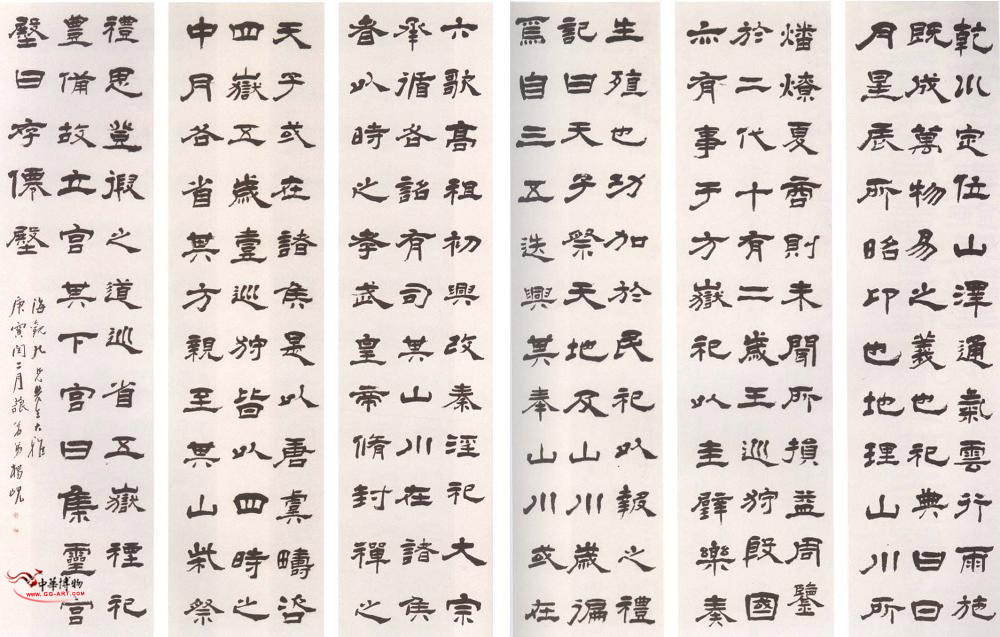 乾川定位山澤通氣雲行雨施
既成萬物易之義也祀典曰日
月星辰所昭卬也地理山川所
燔燎夏商則未聞所損益周鑒
於二代十有二歲王巡狩殷國
亦有事于方嶽祀以圭璧樂奏
生殖也功加於民祀以報之禮
記曰天子祭天地及山川歲徧
焉自三五迭興其奉山川或在
六歌高祖初興改秦淫祀大宗
承循各詔有司其山川在諸侯
者以時之孝武皇帝脩封禪之
天子或在諸侯是以唐虞疇咨
四嶽五歲壹巡狩皆以四時之
中月各省其方親至其山柴祭
禮思登徦之道巡省五嶽禋祀
豐備故立宮其下宮曰集靈宮
壂曰存僊壂
海觀九兄先生大雅
庚寅閏二月藐翁弟楊峴
中華博物
WWW.GG-ART.COM